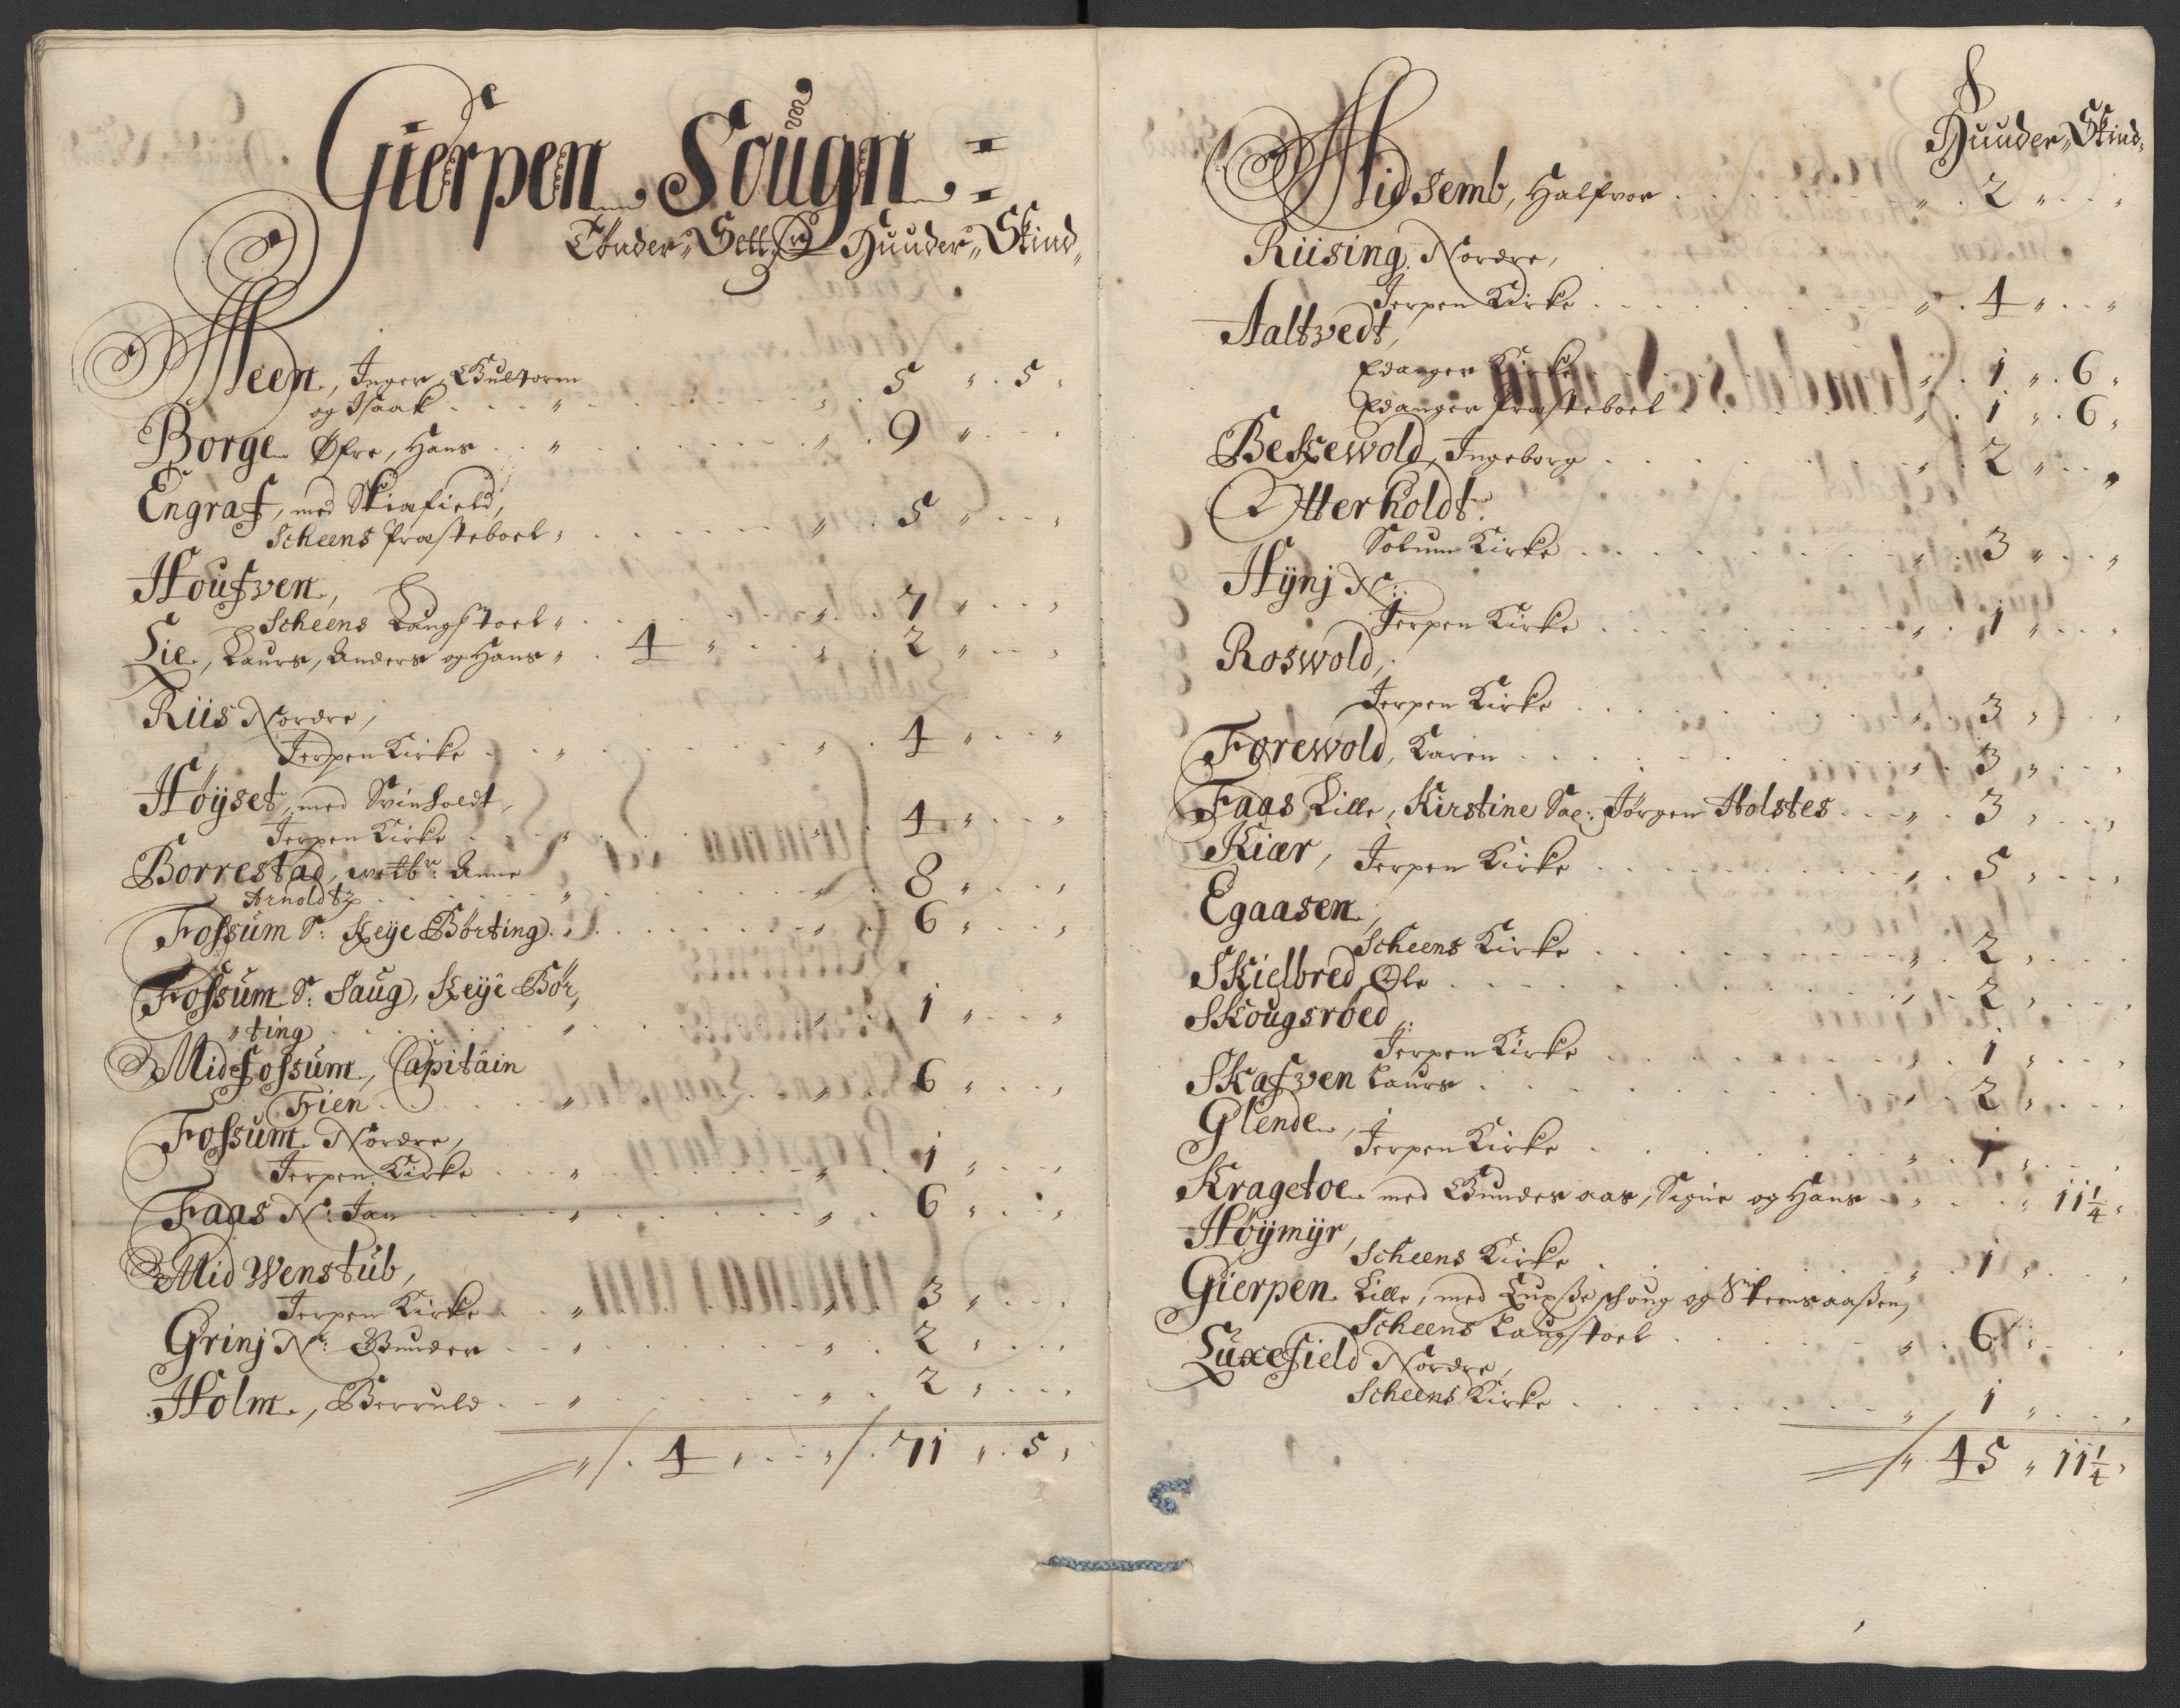 Gierpen Sougn
Tönder, Sett, Huuder, Skind,
Meen, Inger, Gulvorm
og Isaak . . . 5 " 5
Borge Øfre, Hans . . . 9
Engraf, med Skiafield,
Scheens Præsteboel . . . 5
Houfven,
Scheens Laugstoel . . . 7
Lie, Laurs, Anders og Hans . 4 . . 2
Riis Nordre,
Jerpen Kirke . . . 4
Höyset, med Svinholdt,
Jerpen Kirke . . . 4
Borrestad, Anne
Arnoldtz . . . 8
Fossum S: Keye Børting . . . 6
Fossum S: Saug, Keye Bør,
"ting . . . 1
Mid Fossum, Capitain
Fien . . . 6
Fossum Nordre,
Jerpen Kirke . . . 1
Faas N: Jan . . . 6
Mid Wenstüb,
Jerpen Kirke . . . 3
Grinj N: Gunder . . . 2
Holm, Berruld . . . 2
4 . . 71 " 5
8
Huuder, Skind,
Midsemb, Halfvor . . . 2
Riising Nordre,
Jerpen Kirke . . . 4
Aaltvedt,
Edanger Kirke . . . 1 " 6
Edanger Præsteboel . . . 1 " 6
Bekewold, Ingeborg . . . 2
Otterholdt.
Solum Kirke . . . 3
Hÿnj N:
Jerpen Kirke . . . 1
Roswold,
Jerpen Kirke . . . 3
Førewold, Karen . . . 3
Faas Lille, Kirstine Sal: Jörgen Holstes . . . 3
Kiær, Jerpen Kirke . . . 5
Egaasen,
Scheens Kirke . . . 2
Skielbred Ole . . . 2
Skougsröed
Jerpen Kirke . . . 1
Skafven Laurs . . . 2
Glende,
Jerpen Kirke . . . 1
Kragetoe med Gunders aas, Signe og Hans . . . 11 1/4
Höymÿr,
Scheens Kirke . . . 1
Gierpen Lille, med og
Scheens Laugstoel . . . 6
Luxefield Nordre,
Scheens Kirke . . . 1
45 " 11 1/4